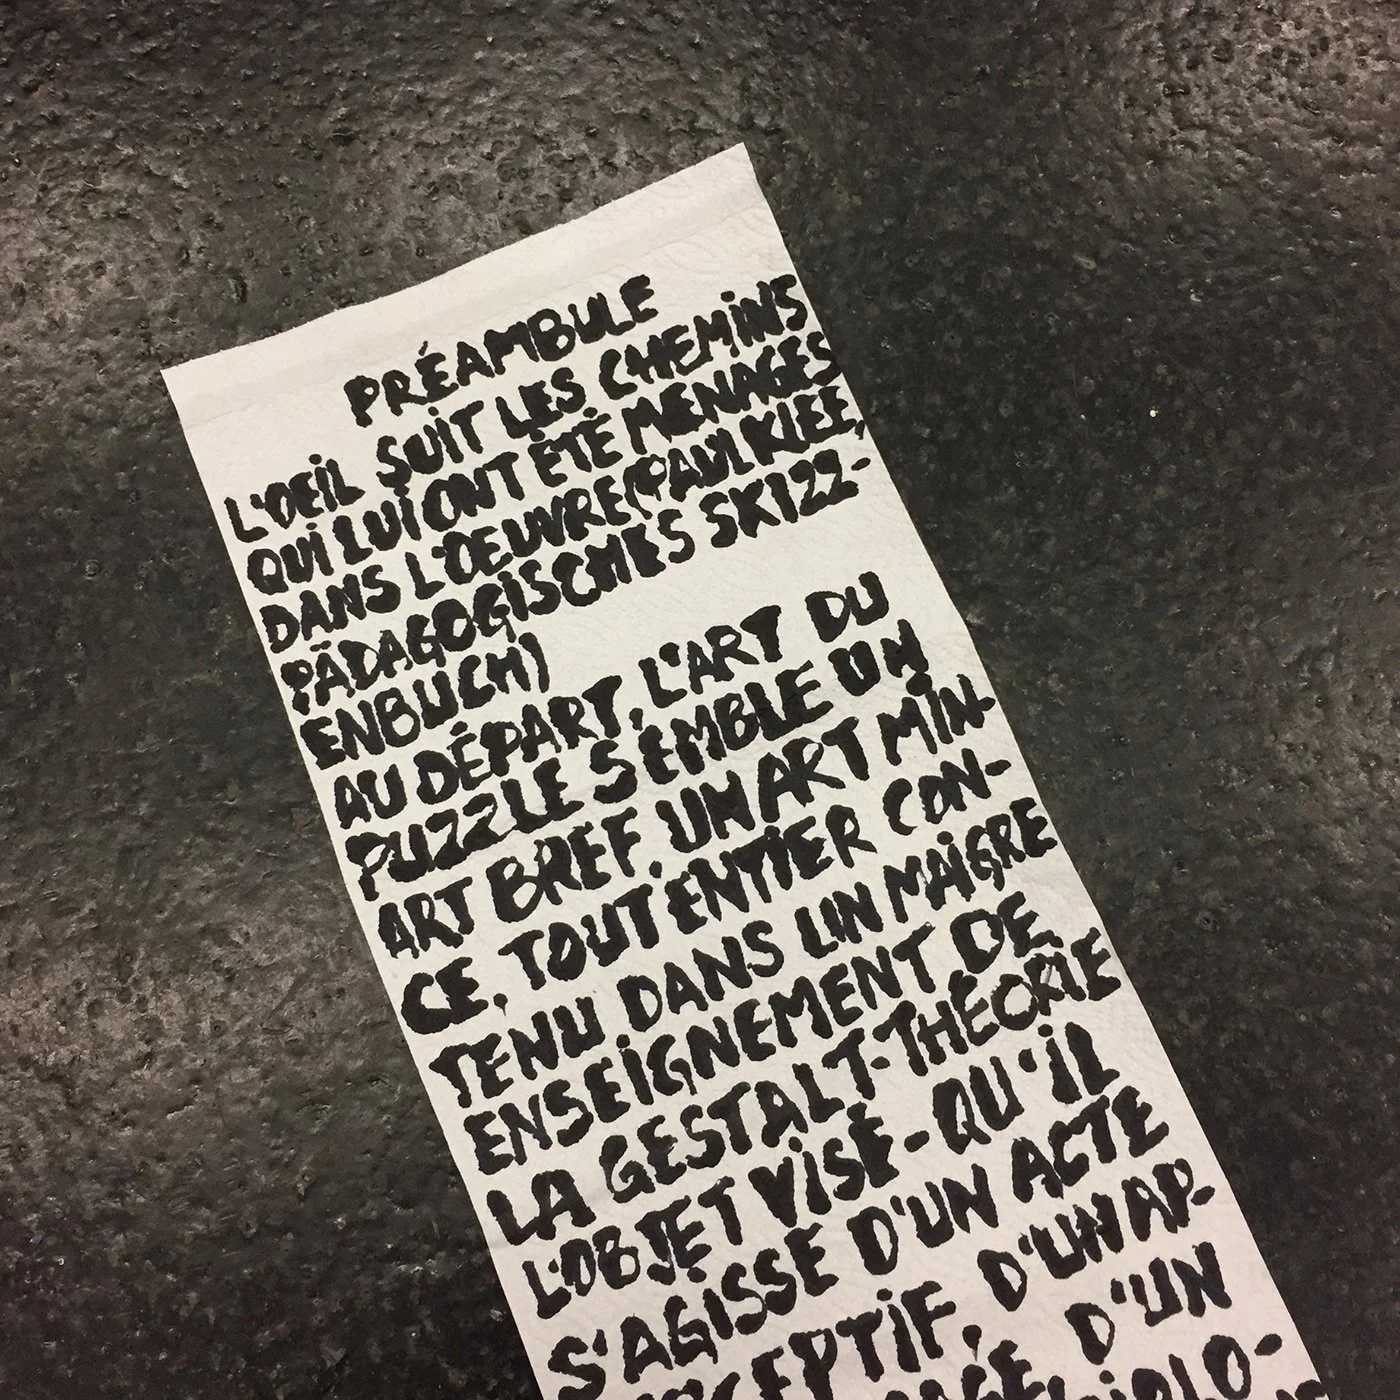 PRÉAMBULE
L'OEIL SUIT LES CHEMINS
QUI LUI ONT ÉTÉ MENAGÉS
DANS L'OEUVRE (PAUL KLEE,
PÄDAGOGISCHES SKIZZ-
ENBUCH)
AU DÉPART, L'ART DU
PUZZLE SEMBLE UN
ART BREF, UN ART MIN-
CE, TOUT ENTIER CON-
TENU DANS UN MAIGRE
ENSEIGNEMENT DE
LA GESTALT-THÉORIE
L'OBJET VISÉ - QU'IL
S'AGISSE D'UN ACTE
CEPTIF, D'UN AP-
D'UN